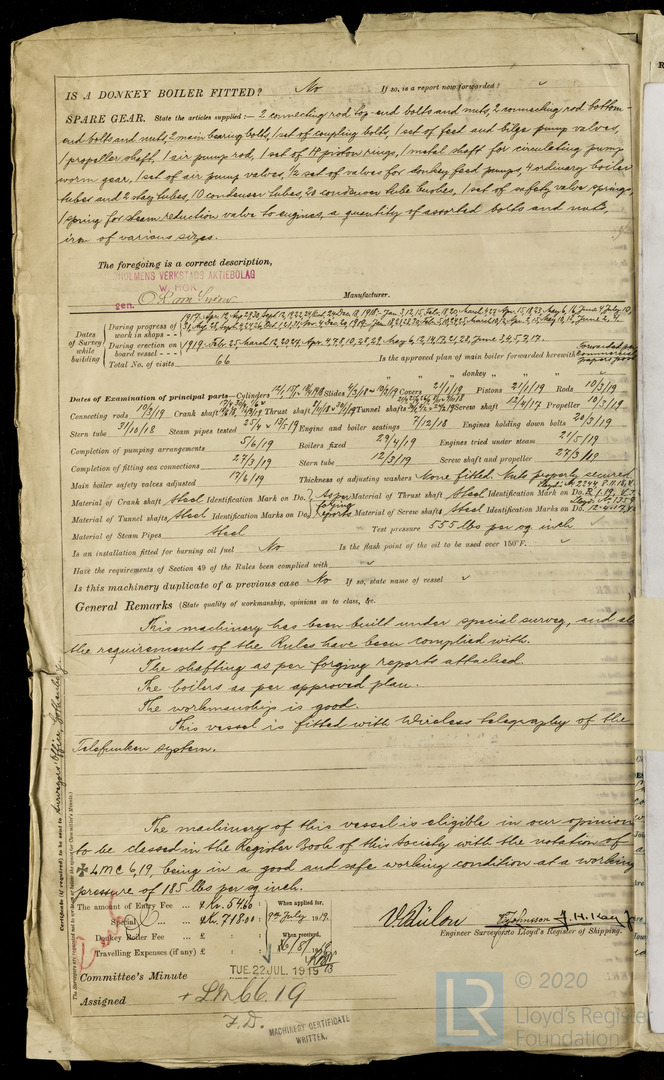 IS A DONKEY BOILER FITTED? No If so, is a report now forwarded?
SPARE GEAR. State the articles supplied:— 2 connecting rod top-end bolts and nuts, 2 connecting rod bottom-
end bolts and nuts, 2 main bearing bolts, 1 set of coupling bolts, 1 set of feed and bilge pump valves,
1 propeller shaft, 1 air pump rod, 1 set of piston rings, 1 metal shaft for circulating pump
worm gear, 1 set of air pump valves, ½ set of valves for donkey feed pumps, 4 ordinary boiler
tubes and 2 stay tubes, 10 condenser tubes, 20 condenser tube bushes, 1 set of safety valve springs,
1 spring for steam reduction valve to engines, a quantity of assorted bolts and nuts,
iron of various sizes.
The foregoing is a correct description,
HOLMENS VERKSTADS AKTIEBOLAG
W. HÖK
gen. Manufacturer.
Dates of Survey while building
During progress of work in shops - -
During erection on board vessel - - - 1919. Feb. 25. March 12, 20, 27. Apr. 4, 7, 8, 10, 23, 28. May 6, 12, 14, 17, 21, 28. June 3, 4, 5, 9, 17.
Total No. of visits 66 Is the approved plan of main boiler forwarded herewith Forwarded per commercial papers post
" " " donkey " " "
Dates of Examination of principal parts—Cylinders Slides Covers 21/1/19 Pistons 21/1/19 Rods 10/3/19
Connecting rods 10/3/19 Crank shaft Thrust shaft Tunnel shafts Screw shaft 12/4/17 Propeller 10/3/19
Stern tube 31/10/18 Steam pipes tested 25/4 & 13/5/19 Engine and boiler seatings 7/12/18 Engines holding down bolts 20/3/19
Completion of pumping arrangements 5/6/19 Boilers fixed 29/4/19 Engines tried under steam 21/5/19
Completion of fitting sea connections 27/3/19 Stern tube 12/3/19 Screw shaft and propeller 27/3/19
Main boiler safety valves adjusted 17/6/19 Thickness of adjusting washers None fitted. Nuts properly secured
Material of Crank shaft Steel Identification Mark on Do. As per forging reports Material of Thrust shaft Steel Identification Mark on Do.
Material of Tunnel shafts Steel Identification Marks on Do. Material of Screw shafts Steel Identification Marks on Do.
Material of Steam Pipes Steel Test pressure 555 lbs per sq inch
Is an installation fitted for burning oil fuel No Is the flash point of the oil to be used over 150°F.
Have the requirements of Section 49 of the Rules been complied with
Is this machinery duplicate of a previous case No If so, state name of vessel
General Remarks (State quality of workmanship, opinions as to class, &c.
This machinery has been built under special survey, and all
the requirements of the Rules have been complied with.
The shafting as per forging reports attached.
The boilers as per approved plan.
The workmanship is good.
This vessel is fitted with Wireless telegraphy of the
Telefunken system.
The machinery of this vessel is eligible in our opinion
to be classed in the Register Book of this Society with the notation of
✠ LMC 6,19, being in a good and safe working condition at a working
pressure of 185 lbs per sq inch.
The amount of Entry Fee ... Kr. 54.66 When applied for,
Special ... Kr. 718.00 9th July 1919.
Donkey Boiler Fee ... £ When received,
Travelling Expenses (if any) £ 16/8/19
Engineer Surveyors to Lloyd's Register of Shipping.
Committee's Minute TUE. 22 JUL. 1919
Assigned + LMC 6.19
F.D.
MACHINERY CERTIFICATE
WRITTEN.
Certificate (if required) to be sent to Surveyors Office, Gothenburg
The Surveyors are requested not to write on or below the space for Committee's Minute.
LR © 2020
Lloyd's Register
Foundation